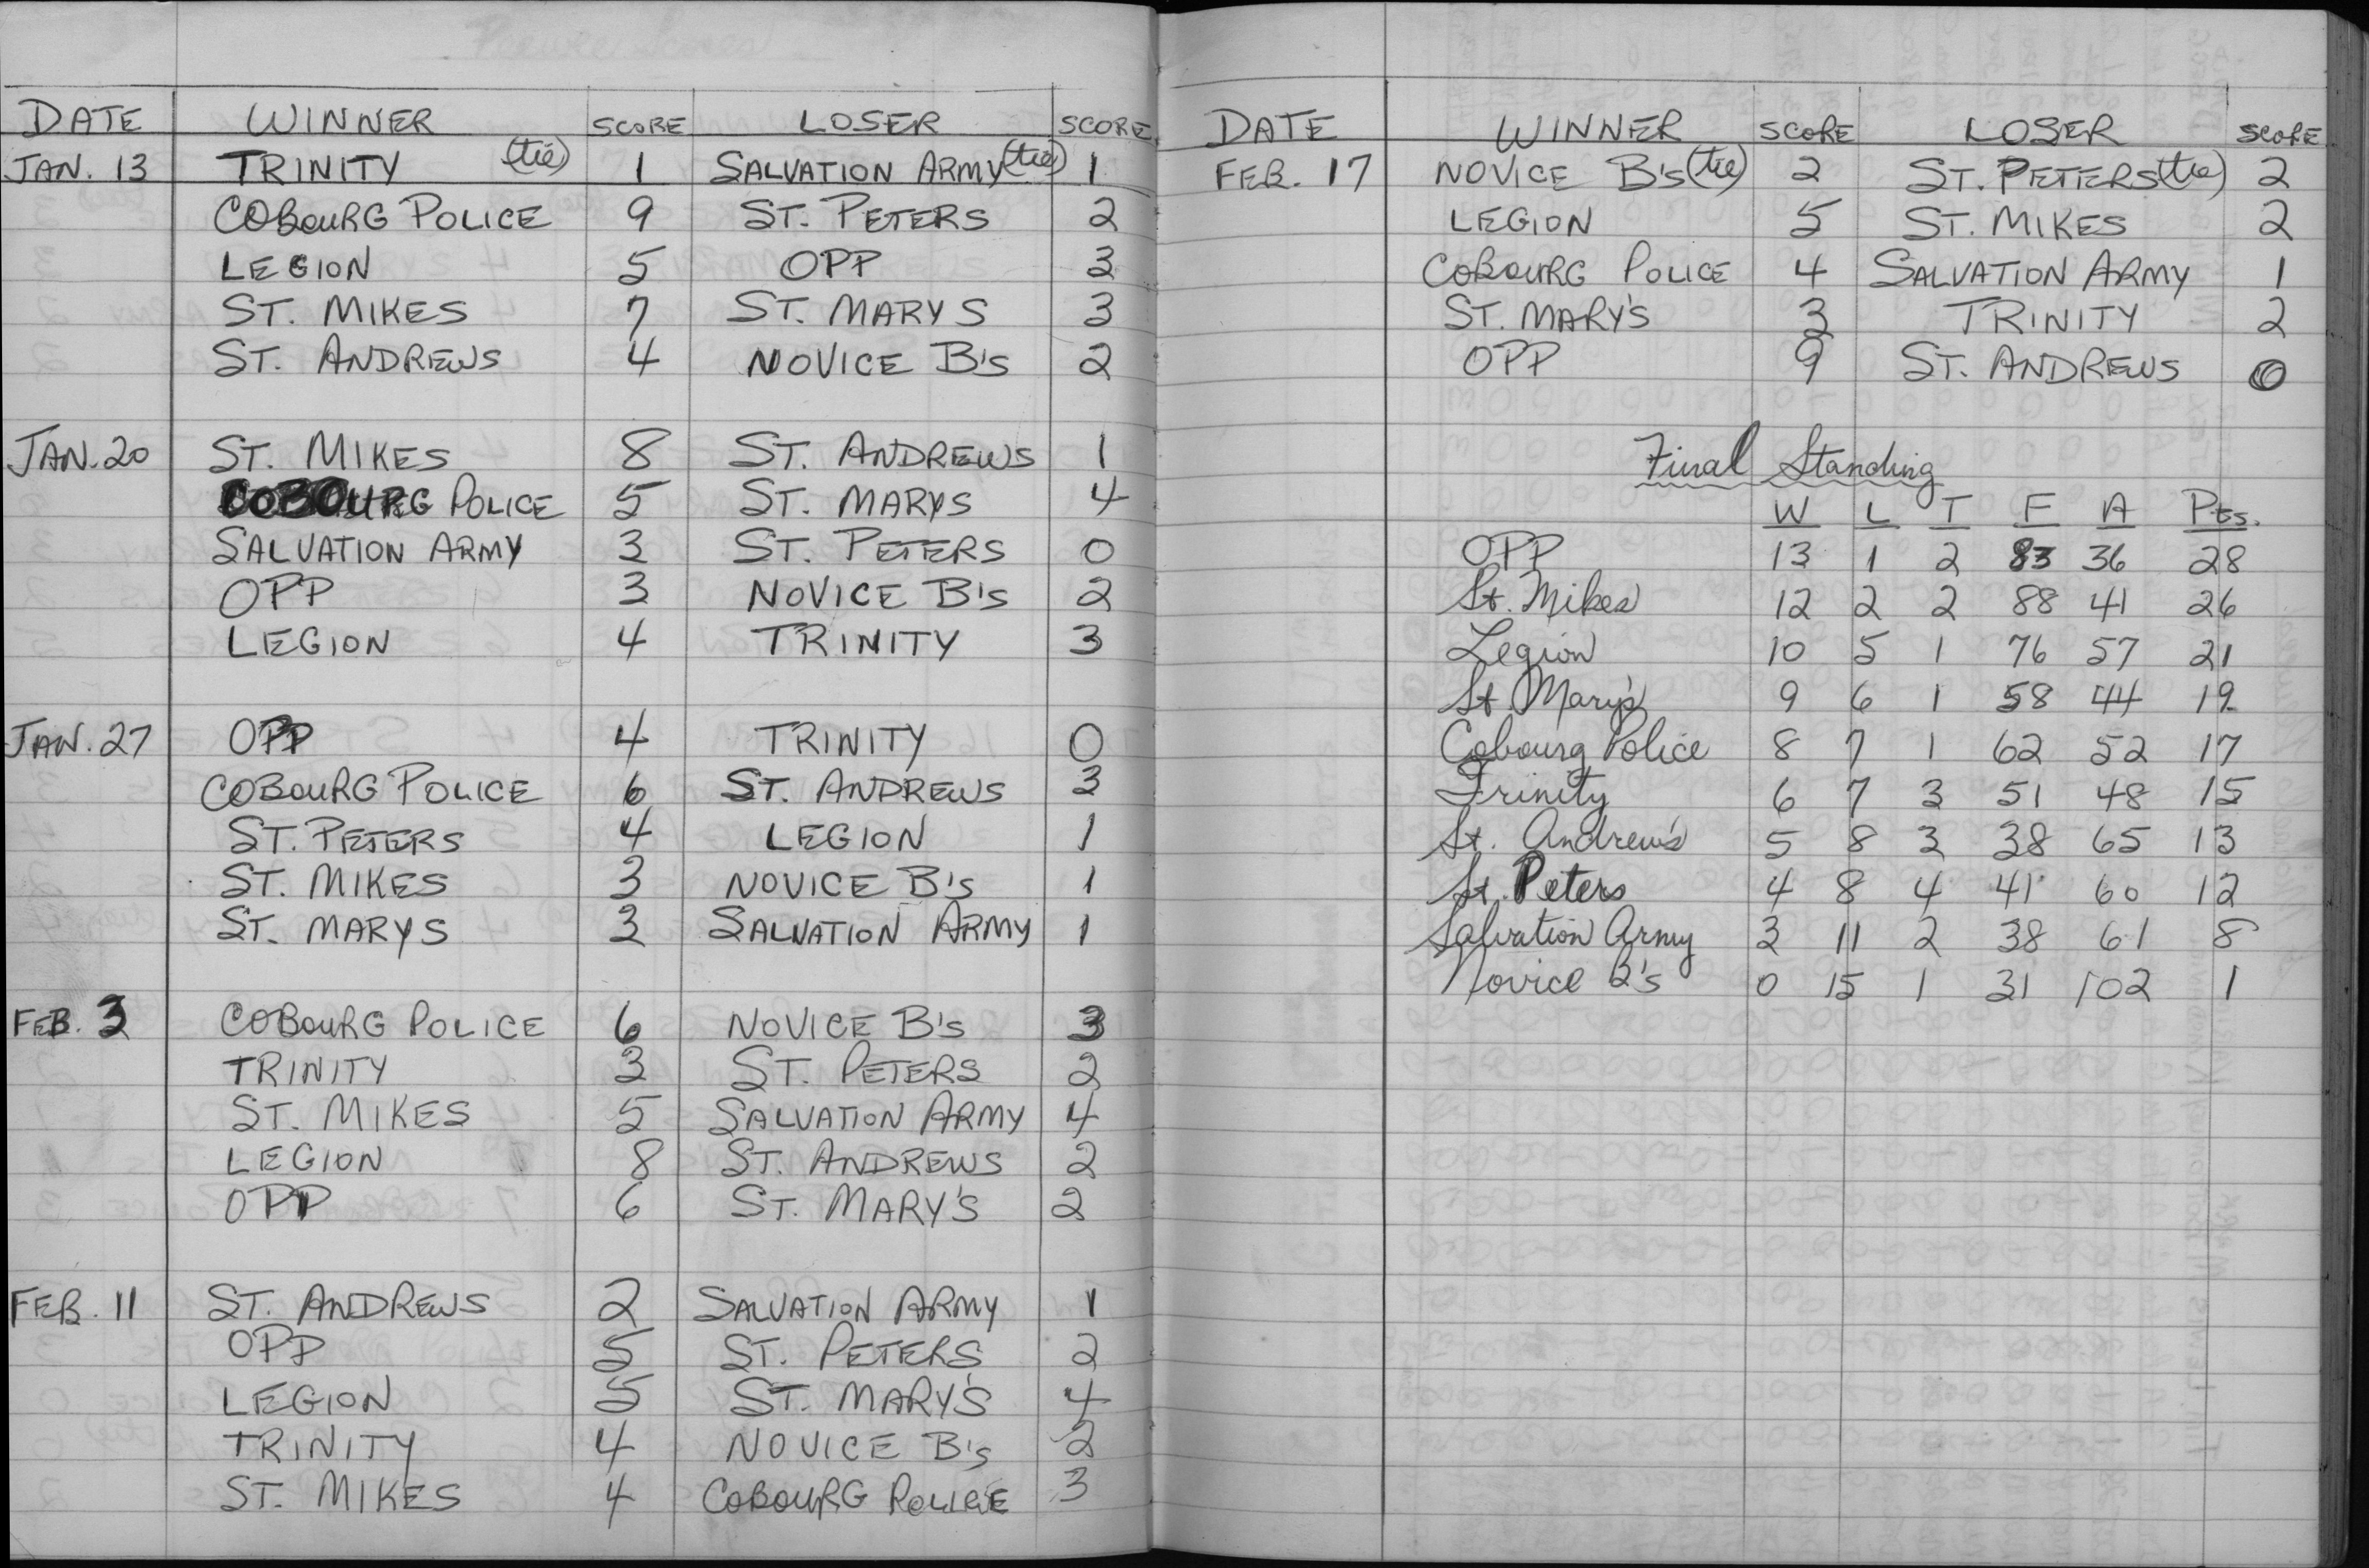 DATE WINNER SCORE LOSER SCORE
JAN. 13 TRINITY (tie) 1 SALVATION ARMY (tie) 1
COBOURG POLICE 9 ST. PETERS 2
LEGION 5 OPP 3
ST. MIKES 7 ST. MARYS 3
ST. ANDREWS 4 NOVICE B's 2
JAN. 20 ST. MIKES 8 ST. ANDREWS 1
COBOURG POLICE 5 ST. MARYS 4
SALVATION ARMY 3 ST. PETERS 0
OPP 3 NOVICE B's 2
LEGION 4 TRINITY 3
JAN. 27 OPP 4 TRINITY 0
COBOURG POLICE 6 ST. ANDREWS 3
ST. PETERS 4 LEGION 1
ST. MIKES 3 NOVICE B's 1
ST. MARYS 3 SALVATION ARMY 1
FEB. 3 COBOURG POLICE 6 NOVICE B's 3
TRINITY 3 ST. PETERS 2
ST. MIKES 5 SALVATION ARMY 4
LEGION 8 ST. ANDREWS 2
OPP 6 ST. MARY'S 2
FEB. 11 ST. ANDREWS 2 SALVATION ARMY 1
OPP 5 ST. PETERS 2
LEGION 5 ST. MARY'S 4
TRINITY 4 NOVICE B's 2
ST. MIKES 4 COBOURG POLICE 3
DATE WINNER SCORE LOSER SCORE
FEB. 17 NOVICE B's (tie) 2 ST. PETERS (tie) 2
LEGION 5 ST. MIKES 2
COBOURG POLICE 4 SALVATION ARMY 1
ST. MARY'S 3 TRINITY 2
OPP 9 ST. ANDREWS 0
Final Standing
W L T F A Pts.
OPP 13 1 2 83 36 28
St. Mikes 12 2 2 88 41 26
Legion 10 5 1 76 57 21
St. Mary's 9 6 1 58 44 19
Cobourg Police 8 7 1 62 52 17
Trinity 6 7 3 51 48 15
St. Andrew's 5 8 3 38 65 13
St. Peters 4 8 4 41 60 12
Salvation Army 3 11 2 38 61 8
Novice B's 0 15 1 31 102 1